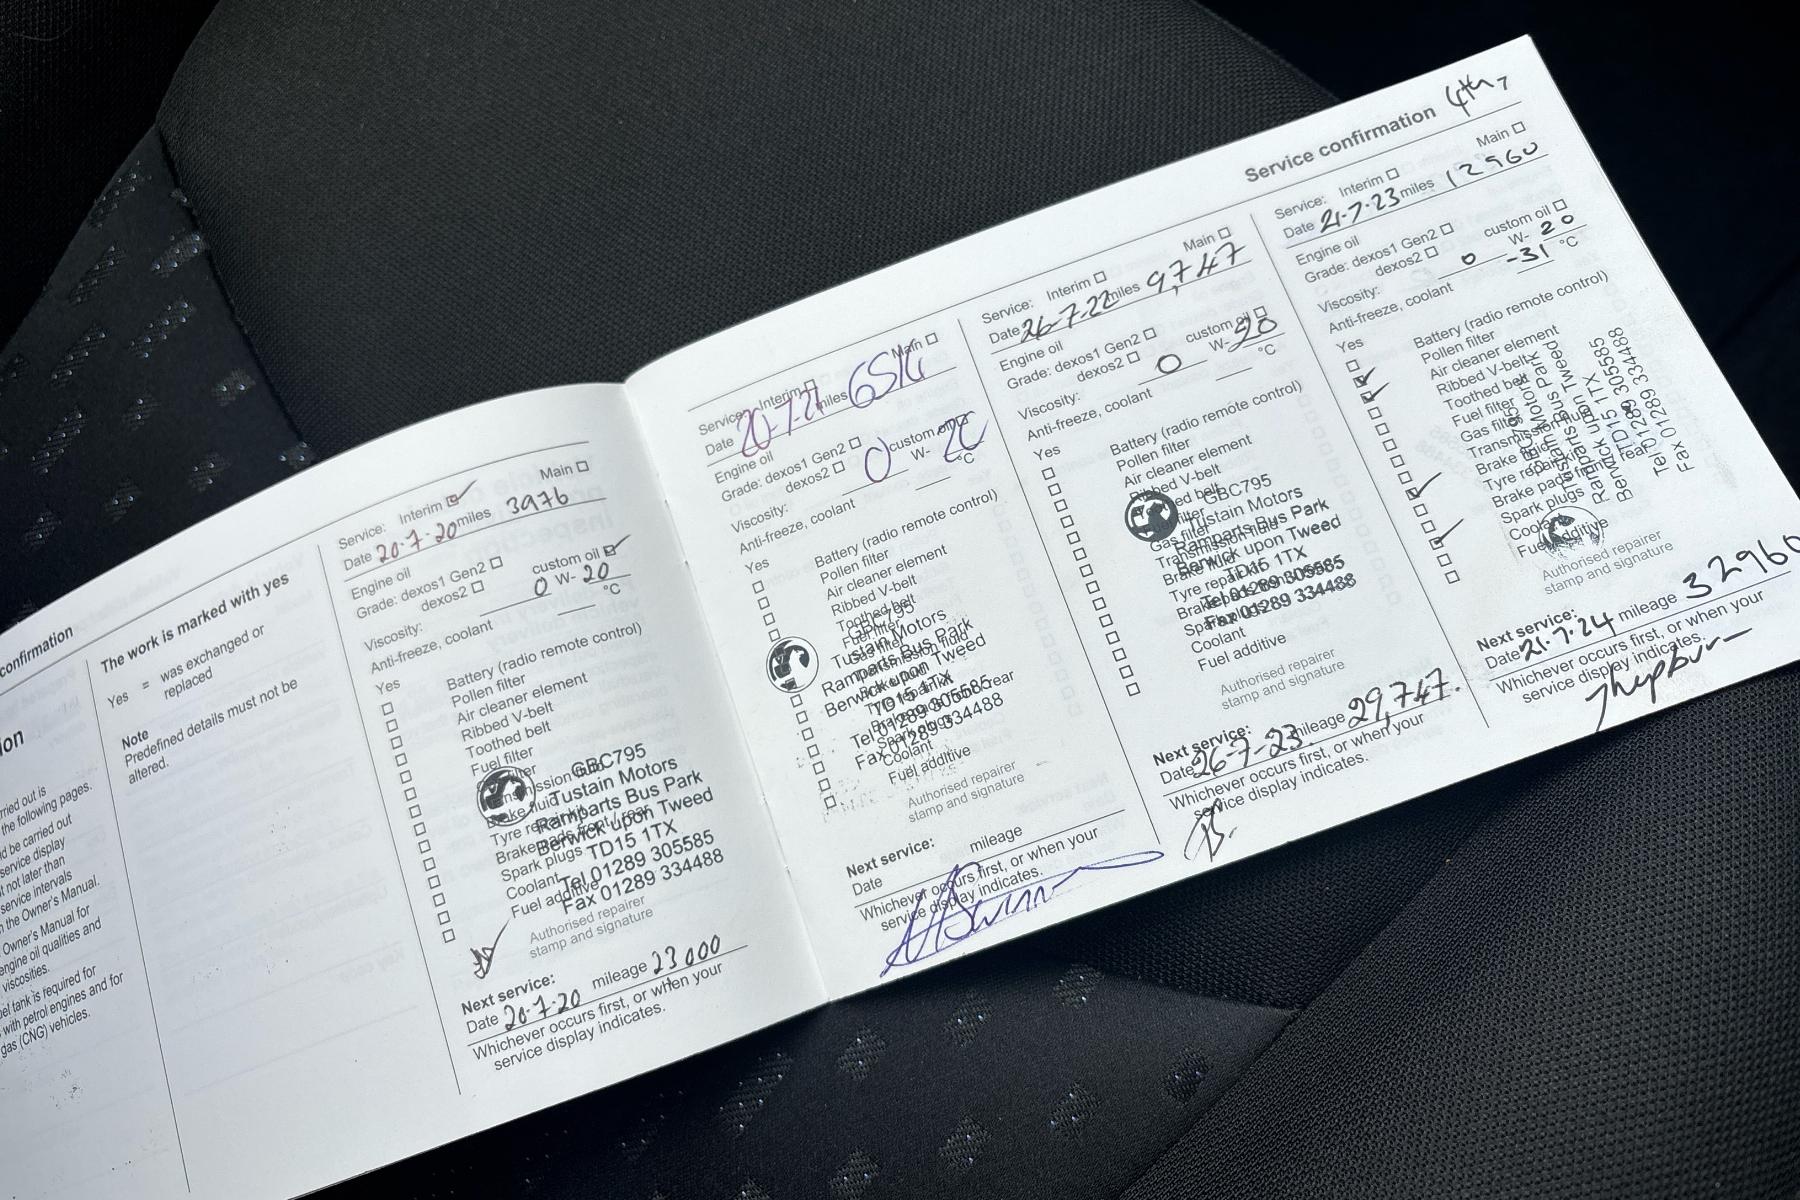 confirmation
ion
rried out is
the following pages.
d be carried out
service display
t not later than
service intervals
n the Owner's Manual.
Owner's Manual for
engine oil qualities and
viscosities.
el tank is required for
with petrol engines and for
gas (CNG) vehicles.
The work is marked with yes
Yes = was exchanged or
replaced
Note
Predefined details must not be
altered.
Service: Interim ☑ Main ☐
Date 20-7-20 miles 3976
Engine oil
Grade: dexos1 Gen2 ☐ custom oil ☑
dexos2 ☐
Viscosity: 0 W- 20
Anti-freeze, coolant °C
Yes
Battery (radio remote control)
Pollen filter
Air cleaner element
Ribbed V-belt
Toothed belt
Fuel filter
Brake fluid
Tyre repair
Brake pads front / rear
Spark plugs
Coolant
Fuel additive
GBC795
Tustain Motors
Ramparts Bus Park
Berwick upon Tweed
TD15 1TX
Tel 01289 305585
Fax 01289 334488
Authorised repairer
stamp and signature
Next service:
Date 20-7-20 mileage 23000
Whichever occurs first, or when your
service display indicates.
Service: Interim ☐ Main ☐
Date 20-7-21 miles 6514
Engine oil
Grade: dexos1 Gen2 ☐ custom oil
dexos2 ☐
Viscosity: 0 W- 20
Anti-freeze, coolant °C
Yes
Battery (radio remote control)
Pollen filter
Air cleaner element
Ribbed V-belt
Toothed belt
Coolant
Fuel additive
Tustain Motors
Ramparts Bus Park
Berwick upon Tweed
TD15 1TX
Tel 01289 305585
Fax 01289 334488
Authorised repairer
stamp and signature
Next service:
Date mileage
Whichever occurs first, or when your
service display indicates.
Service: Interim ☐ Main ☐
Date 26-7-22 miles 9,747
Engine oil
Grade: dexos1 Gen2 ☐ custom oil ☐
dexos2 ☐
Viscosity: 0 W- 20
Anti-freeze, coolant °C
Yes
Battery (radio remote control)
Pollen filter
Air cleaner element
Ribbed V-belt
Gas filter
Transmission fluid
Brake fluid
Tyre repair
Coolant
Fuel additive
GBC795
Tustain Motors
Ramparts Bus Park
Berwick upon Tweed
TD15 1TX
Tel 01289 305585
Fax 01289 334488
Authorised repairer
stamp and signature
Next service:
Date 26-7-23 mileage 29,747.
Whichever occurs first, or when your
service display indicates.
Service confirmation 4th
Service: Interim ☐ Main ☐
Date 21-7-23 miles 12960
Engine oil
Grade: dexos1 Gen2 ☐ custom oil ☐
dexos2 ☐
Viscosity: 0 W- 20
Anti-freeze, coolant -31 °C
Yes
Battery (radio remote control)
Pollen filter
Air cleaner element
Ribbed V-belt
Toothed belt
Fuel filter
Gas filter
Transmission fluid
Brake fluid
Tyre repair
Brake pads front / rear
Spark plugs
Coolant
Fuel additive
Tustain Motors
Ramparts Bus Park
Berwick upon Tweed
TD15 1TX
Tel 01289 305585
Fax 01289 334488
Authorised repairer
stamp and signature
Next service:
Date 21-7-24 mileage 32960
Whichever occurs first, or when your
service display indicates.